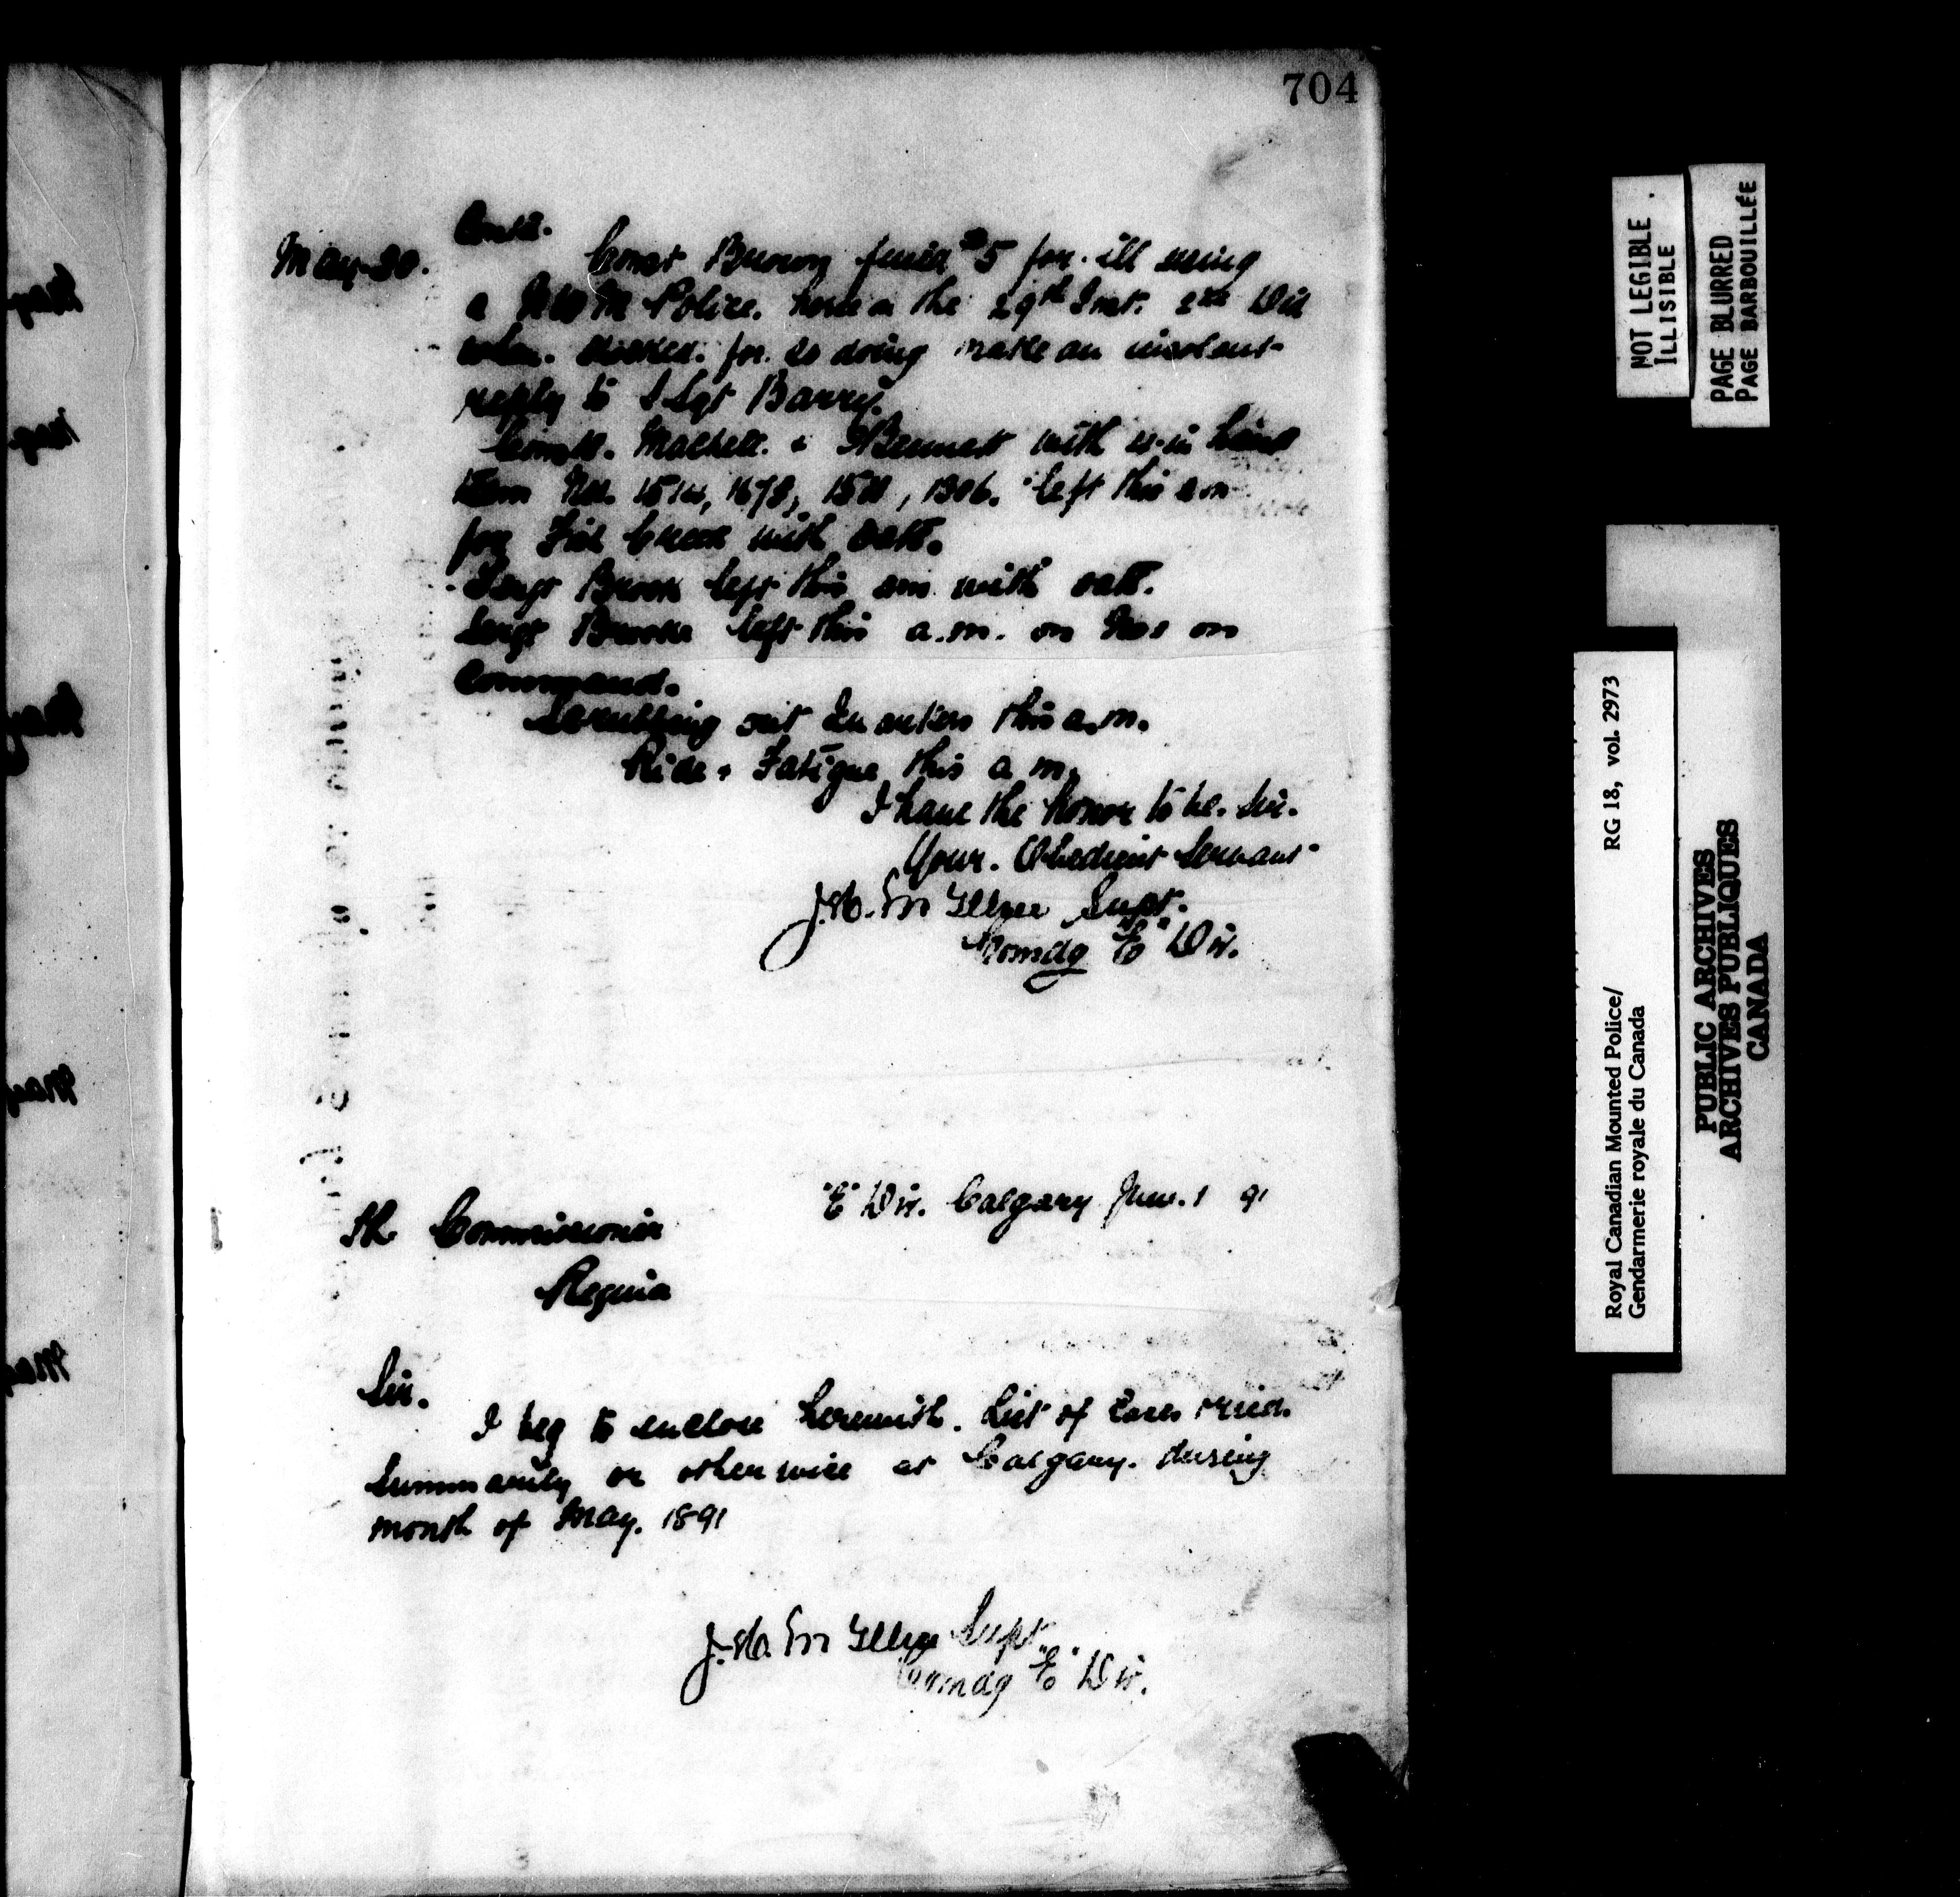 704
Contd.
May 30. Const Brown fined $5 for ill using
a NWM Police. horse on the 29th Inst. 2nd Div
when. checked. for. so doing make an insolent
reply to S Sgt Barry.
Consts. & Bennett with 4 in hand
Team Nos. 1514, 1678, 1306. left this a m
for Fish Creek with Oats.
Sergt Brook left this am with oats.
Sergt Brooke left this a.m. on on
Command.
Scrubbing out Quarters this a.m.
Ride & Fatigue this a m.
I have the honor to be. Sir.
Your. Obedient Servant
J.H. McIllree Supt.
Comdg "E" Div.
"E" Div. Calgary June. 1 91
The Commissioner
Regina
Sir.
I beg to enclose herewith. List of Cases tried.
Summarily or otherwise at Calgary. during
month of May. 1891
J.H. McIllree Supt
Comdg "E" Div.
NOT LEGIBLE
ILLISIBLE
PAGE BLURRED
PAGE BARBOUILLÉE
Royal Canadian Mounted Police/ RG 18, vol. 2973
Gendarmerie royale du Canada
PUBLIC ARCHIVES
ARCHIVES PUBLIQUES
CANADA